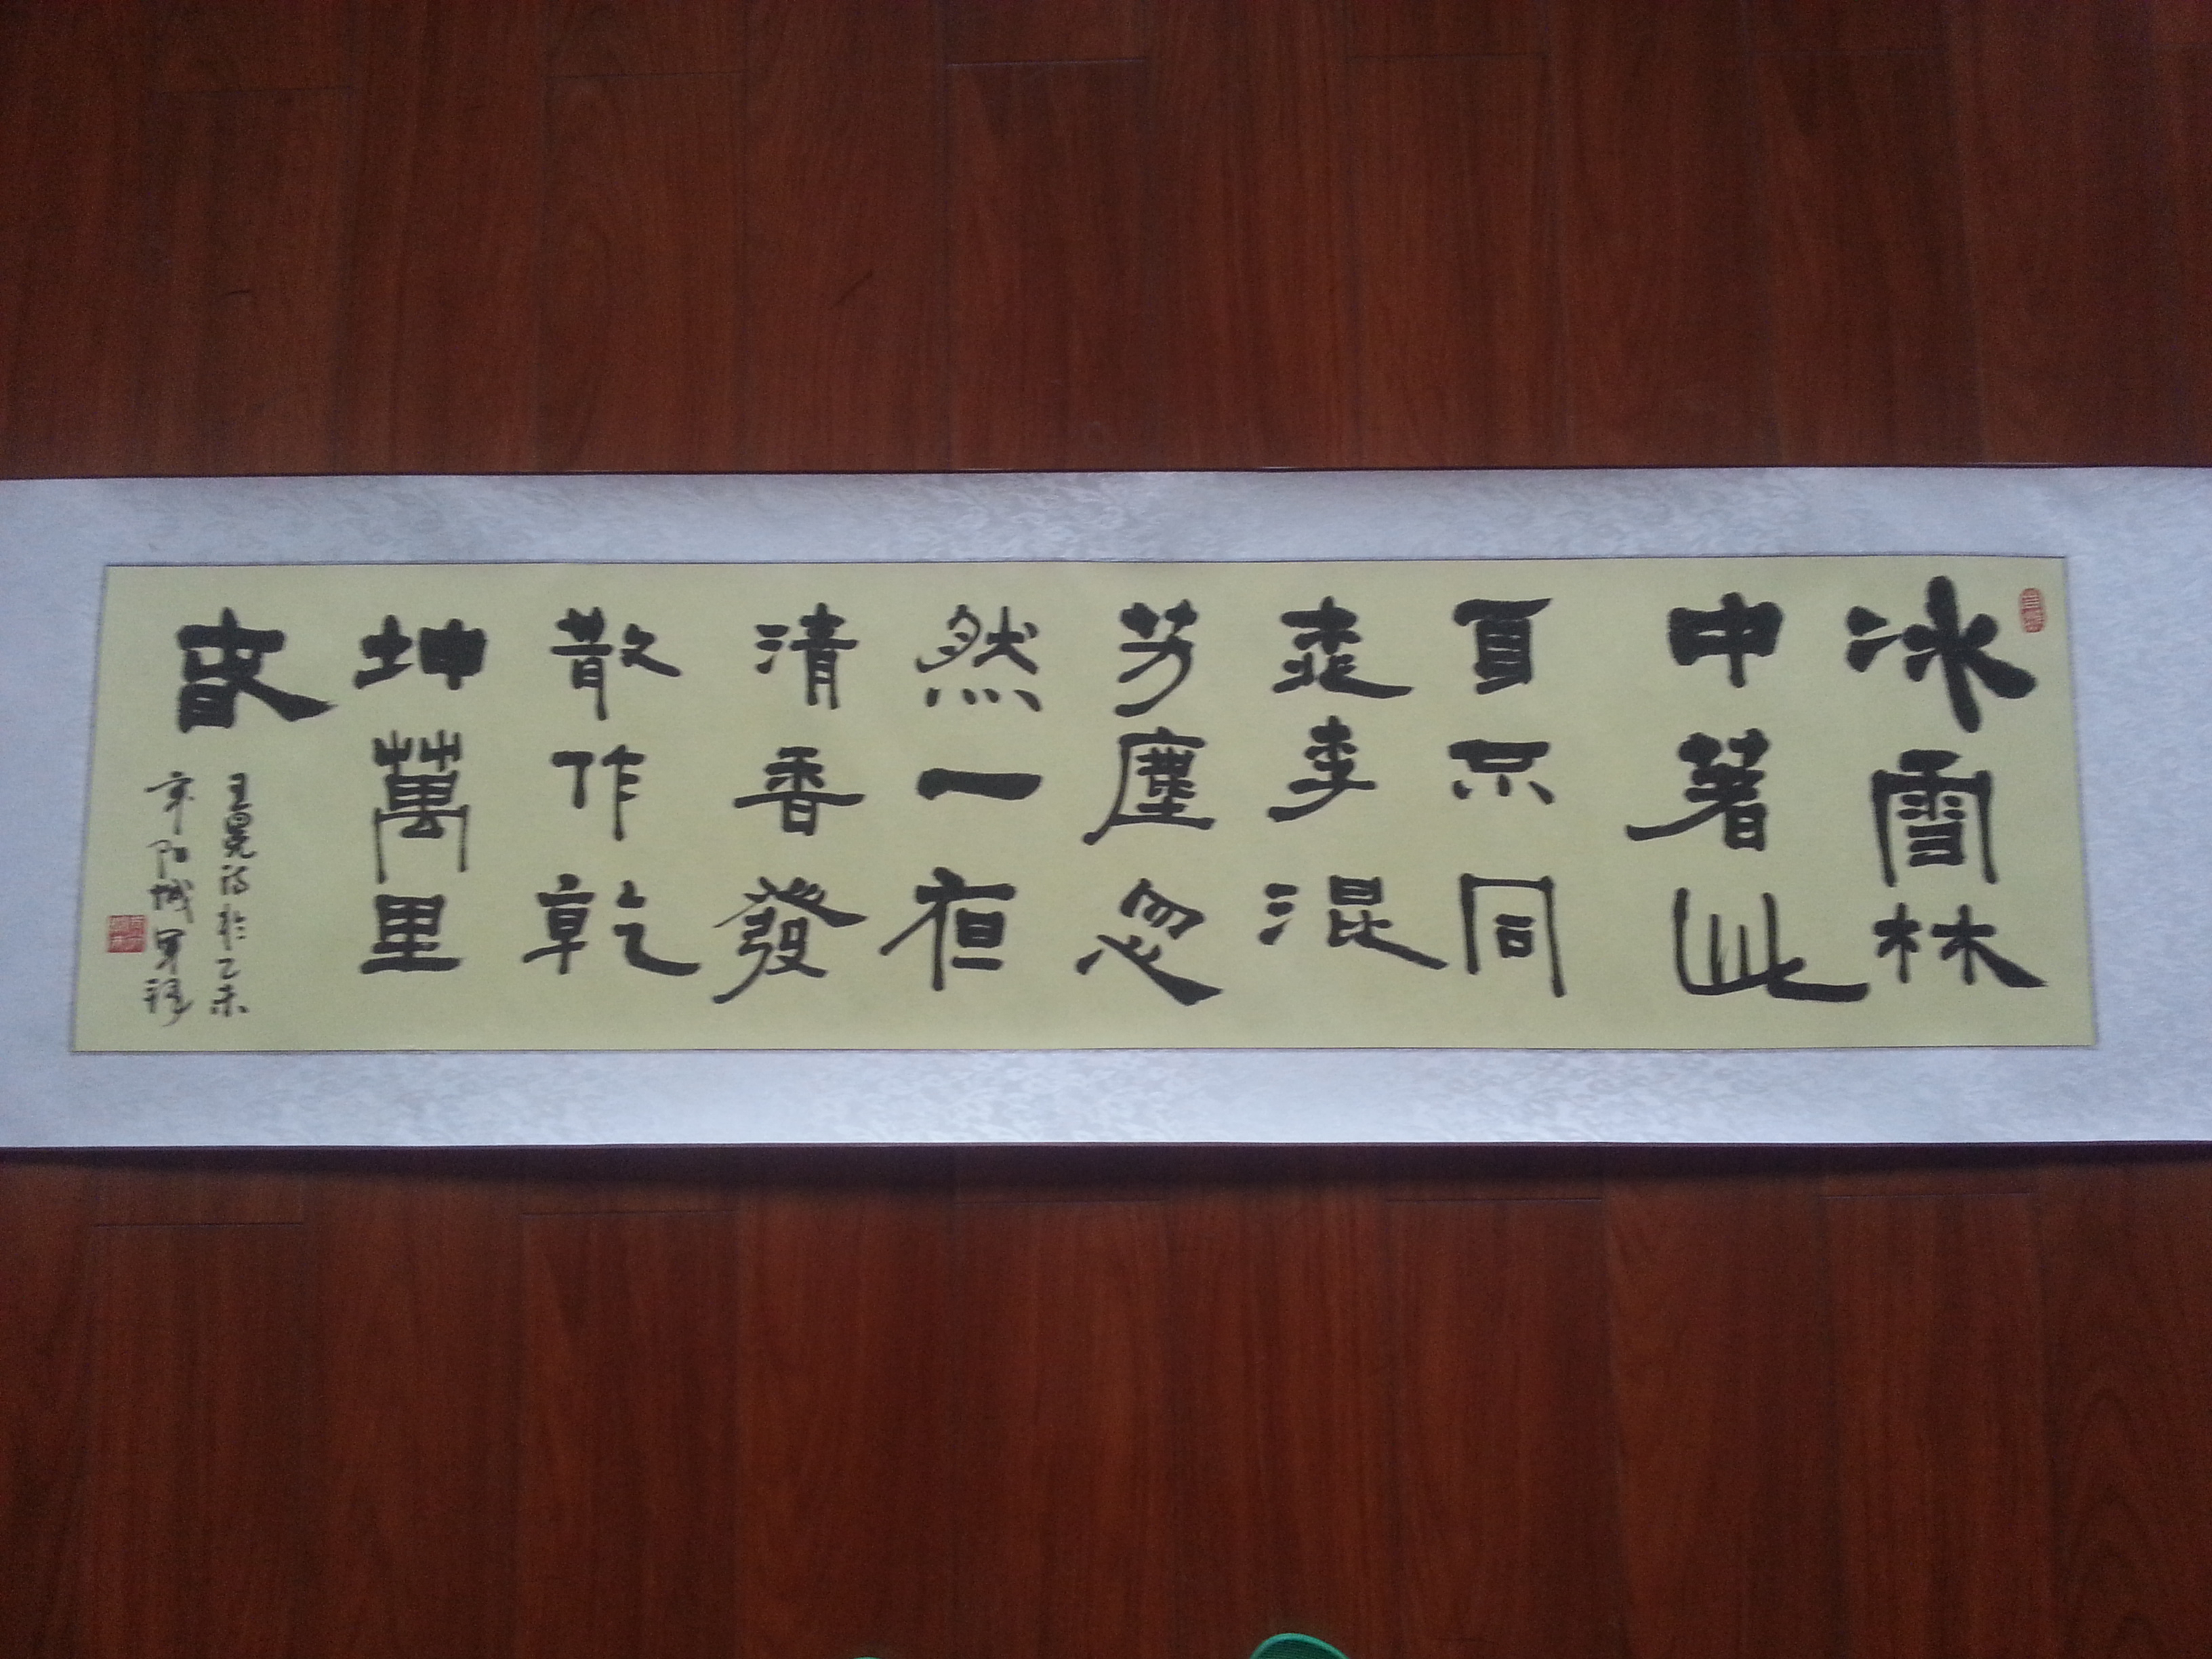 冰雪林
中著此
身不同
桃李混
芳塵忽
然一夜
清香發
散作乾
坤萬里
春
王冕詩於乙未